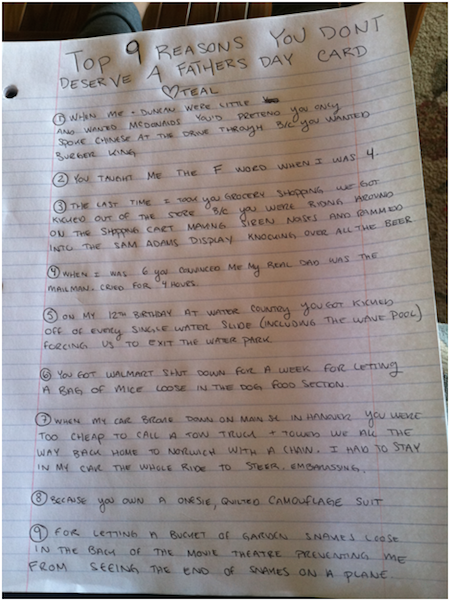 TOP 9 REASONS YOU DONT
DESERVE A FATHERS DAY CARD
♡TEAL
① WHEN ME + DUNCAN WERE LITTLE
AND WANTED MCDONALDS YOU'D PRETEND YOU ONLY
SPOKE CHINESE AT THE DRIVE THROUGH B/C YOU WANTED
BURGER KING.
② YOU TAUGHT ME THE F WORD WHEN I WAS 4.
③ THE LAST TIME I TOOK YOU GROCERY SHOPPING WE GOT
KICKED OUT OF THE STORE B/C YOU WERE RIDING AROUND
ON THE SHOPPING CART MAKING SIREN NOISES AND RAMMED
INTO THE SAM ADAMS DISPLAY KNOCKING OVER ALL THE BEER
④ WHEN I WAS 6 YOU CONVINCED ME MY REAL DAD WAS THE
MAILMAN. CRIED FOR 4 HOURS.
⑤ ON MY 12TH BIRTHDAY AT WATER COUNTRY YOU GOT KICKED
OFF OF EVERY SINGLE WATER SLIDE (INCLUDING THE WAVE POOL)
FORCING US TO EXIT THE WATER PARK
⑥ YOU GOT WALMART SHUT DOWN FOR A WEEK FOR LETTING
A BAG OF MICE LOOSE IN THE DOG FOOD SECTION.
⑦ WHEN MY CAR BROKE DOWN ON MAIN ST. IN HANOVER YOU WERE
TOO CHEAP TO CALL A TOW TRUCK + TOWED ME ALL THE
WAY BACK HOME TO NORWICH WITH A CHAIN. I HAD TO STAY
IN MY CAR THE WHOLE RIDE TO STEER. EMBARASSING.
⑧ BECAUSE YOU OWN A ONESIE, QUILTED CAMOUFLAGE SUIT
⑨ FOR LETTING A BUCKET OF GARDEN SNAKES LOOSE
IN THE BACK OF THE MOVIE THEATRE PREVENTING ME
FROM SEEING THE END OF SNAKES ON A PLANE